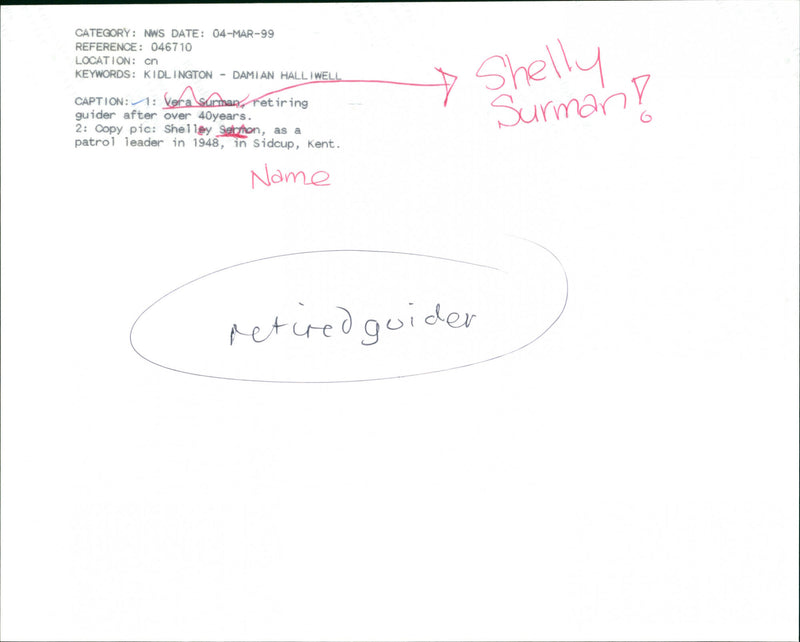 CATEGORY: NWS DATE: 04-MAR-99
REFERENCE: 046710
LOCATION: cn
KEYWORDS: KIDLINGTON - DAMIAN HALLIWELL
CAPTION: 1: Vera Surman, retiring
guider after over 40years.
2: Copy pic: Shelley, as a
patrol leader in 1948, in Sidcup, Kent.
Shelly
Surman!
Name
retired guider